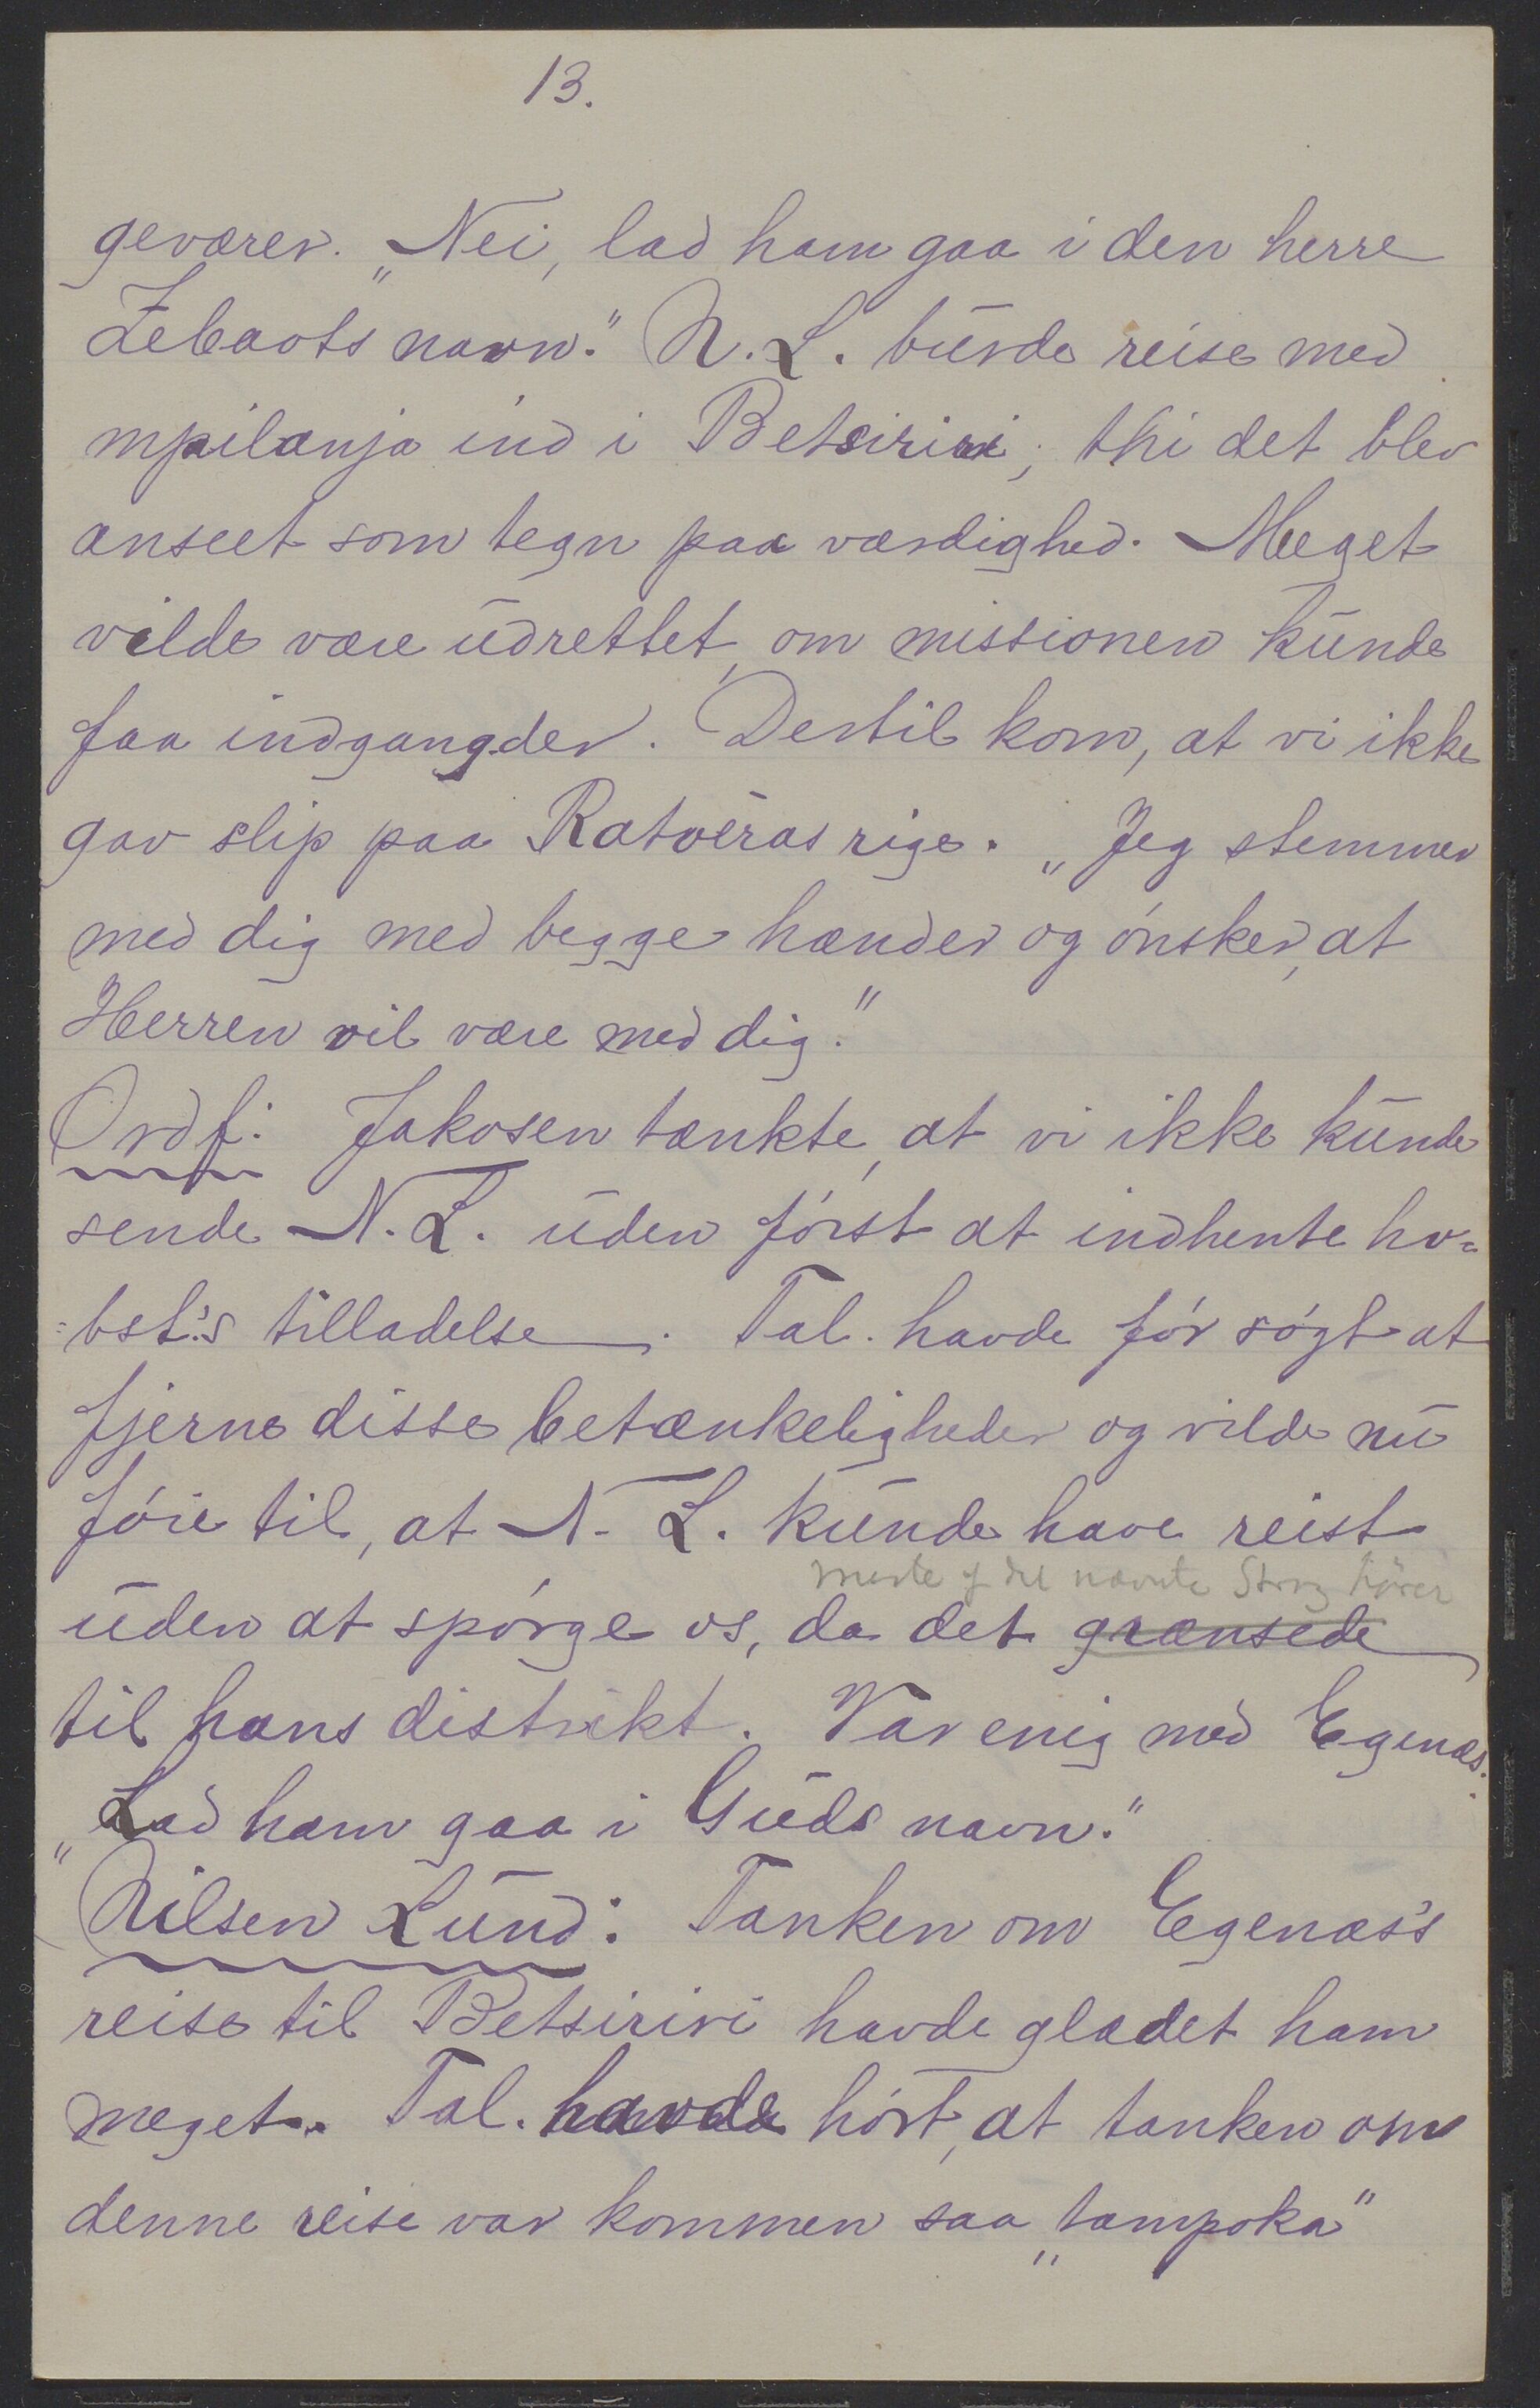 13.
geværer. „Nei, lad ham gaa i den herre
Zebaots navn." N. L. burde reise med
mpilanja ind i Betsiriri; thi det blev
anseet som tegn paa værdighed. Meget
vilde være udrettet, om missionen kunde
faa indgang der. Dertil kom, at vi ikke
gav slip paa Ratoeras rige. „Jeg stemmer
med dig med begge hænder og ønsker, at
Herren vil være med dig."
Ordf: Jakosen tænkte, at vi ikke kunde
sende N. L. uden først at indhente ho=
=bst.'s tilladelse. Tal. havde før søgt at
fjerne disse betænkeligheder og vilde nu
føie til, at N. L. kunde have reist
meste af det nævnte Strøg hører
uden at spørge os, da det grænsede
til hans distrikt. Var enig med Egenæs.
„Lad ham gaa i Guds navn."
Nilsen Lund: Tanken om Egenæs's
reise til Betsiriri havde glædet ham
meget. Tal. havde hørt, at tanken om
denne reise var kommen saa „tampoka"